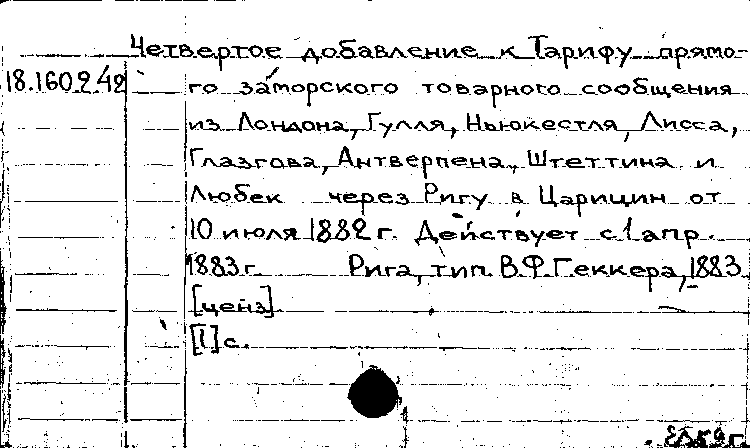 Четвертое добавление к Тарифу прямо-
18.160.2.42 го заморского товарного сообщения
из Лондона, Гулля, Ньюкестля, Лисса,
Глазгова, Антверпена, Штеттина и
Любек через Ригу в Царицин от
10 июля 1882 г. Действует с 1 апр.
1883 г. Рига, тип. В.Ф. Геккера, 1883
[ценз].
[1] с.